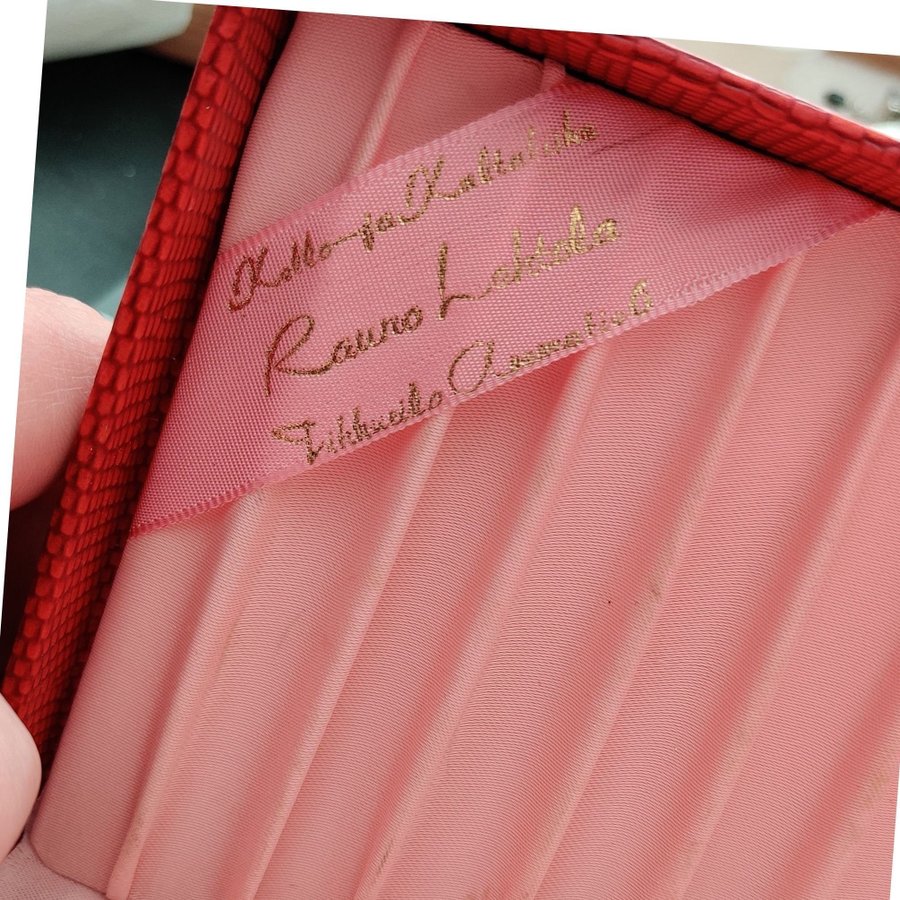 Kello- ja Kultaliike
Rauno Lahtela
Tikkurila Asematie 6